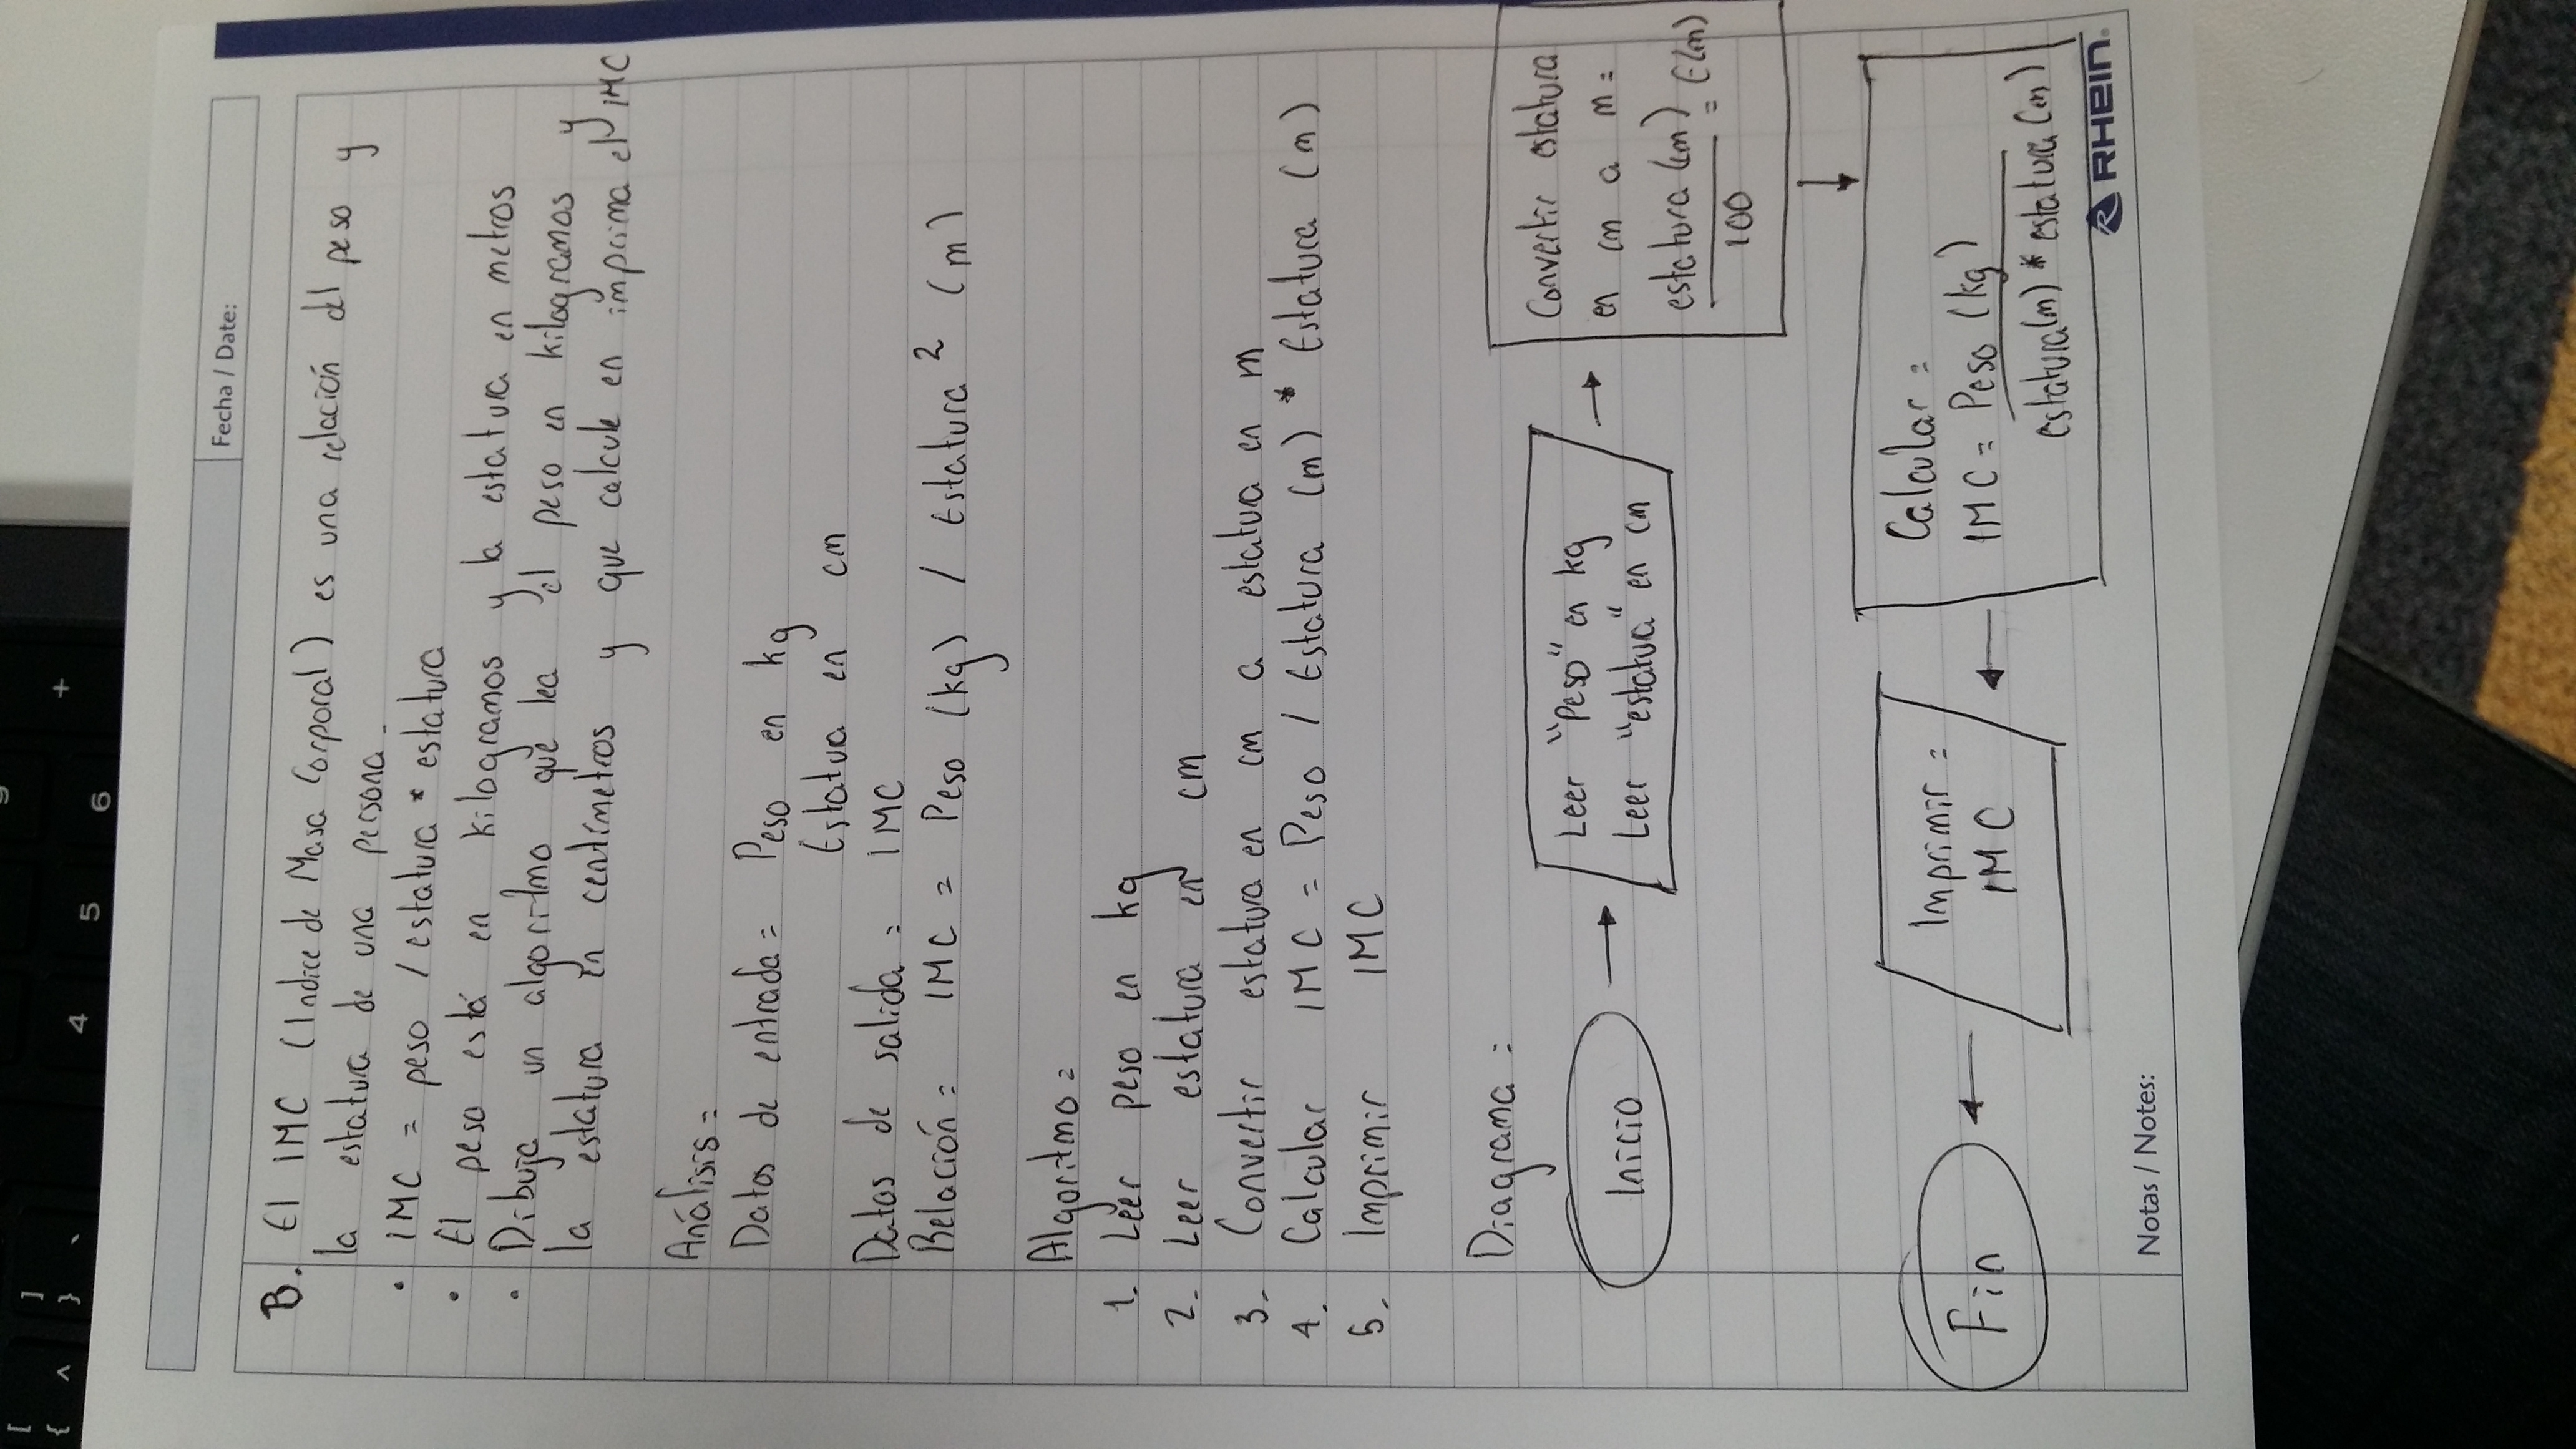 Fecha / Date:
B. El IMC (Indice de Masa Corporal) es una relación del peso y
la estatura de una persona.
• IMC = peso / estatura * estatura
• El peso está en kilogramos y la estatura en metros
• Dibuja un algoritmo que lea el peso en kilogramos y
la estatura en centímetros y que calcule en imprima el IMC
Análisis =
Datos de entrada = Peso en kg
Estatua en cm
Datos de salida = IMC
Relación = IMC = Peso (kg) / Estatura² (m)
Algoritmo =
1. Leer peso en kg
2. Leer estatura en cm
3. Convertir estatura en cm a estatua en m
4. Calcular IMC = Peso / Estatura (m) * Estatura (m)
5. Imprimir IMC
Diagrama =
Inicio
Leer "Peso" en kg
Leer "estatua" en cm
Convertir estatura
en cm a m =
estatura (cm) = E(m)
100
Calcular =
IMC = Peso (kg)
estatura(m) * estatura (m)
Imprimir =
IMC
Fin
Notas / Notes:
RHEIN®
[ ] { } ^ ` 4 5 6 +